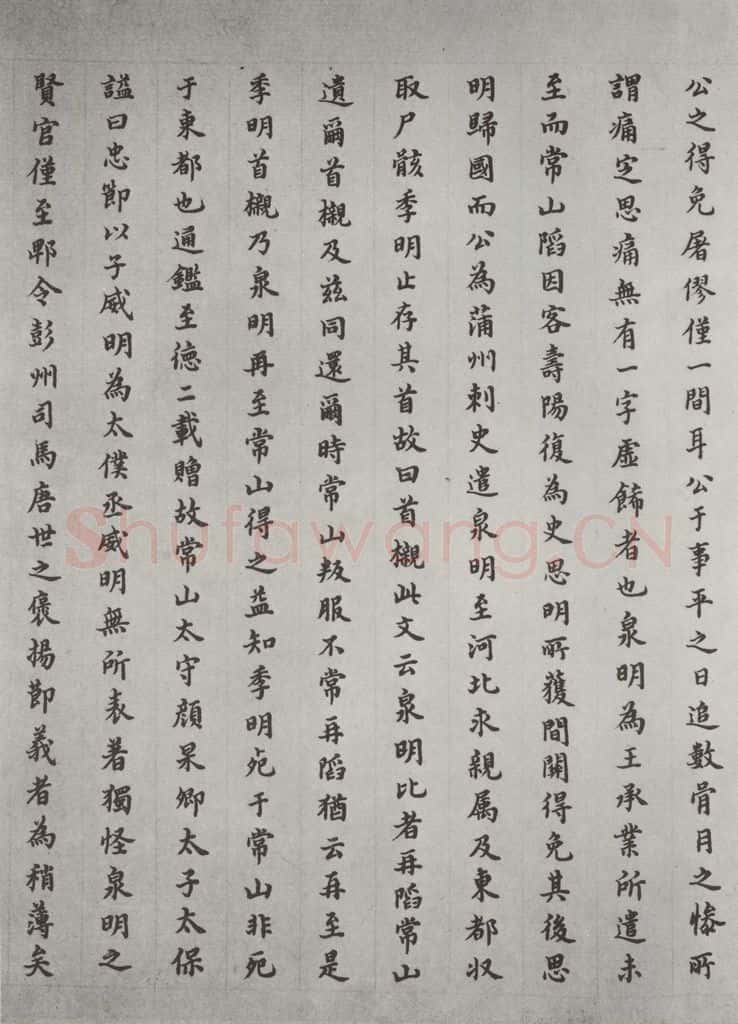 公之得免屠僇僅一間耳公于事平之日追數骨月之慘所
謂痛定思痛無有一字虛餙者也泉明為王承業所遣未
至而常山䧟因客壽陽復為史思明所獲間關得免其後思
明歸國而公為蒲州刺史遣泉明至河北求親属及東都収
取尸骸季明止存其首故曰首櫬此文云泉明比者再䧟常山
遺爾首櫬及兹同還爾時常山叛服不常再䧟猶云再至是
季明首櫬乃泉明再至常山得之益知季明死于常山非死
于東都也通鑑至徳二載贈故常山太守顔杲卿太子太保
諡曰忠節以子威明為太僕丞威明無所表著獨怪泉明之
賢官僅至郫令彭州司馬唐世之褒揚節義者為稍薄矣
Shufawang.CN